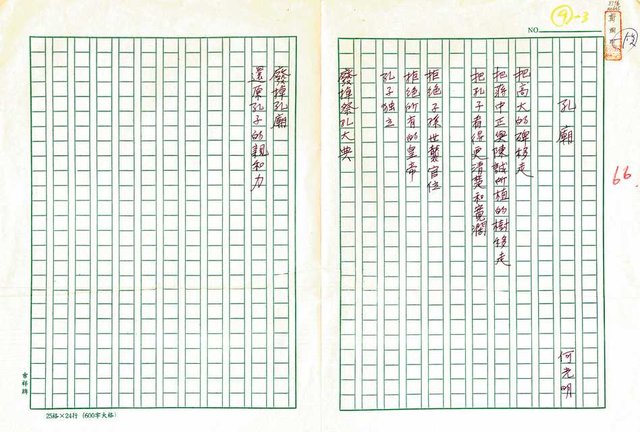 ⑨-3
NO.
66.
孔廟
何光明
把高大的碑移走
把蔣中正與陳誠所植的樹移走
把孔子看得更清楚和寬濶
拒絕子孫世襲官位
拒絕所有的皇帝
孔子独立
廢掉祭孔大典
廢掉孔廟
還原孔子的親和力
25格×24行(600字大格)